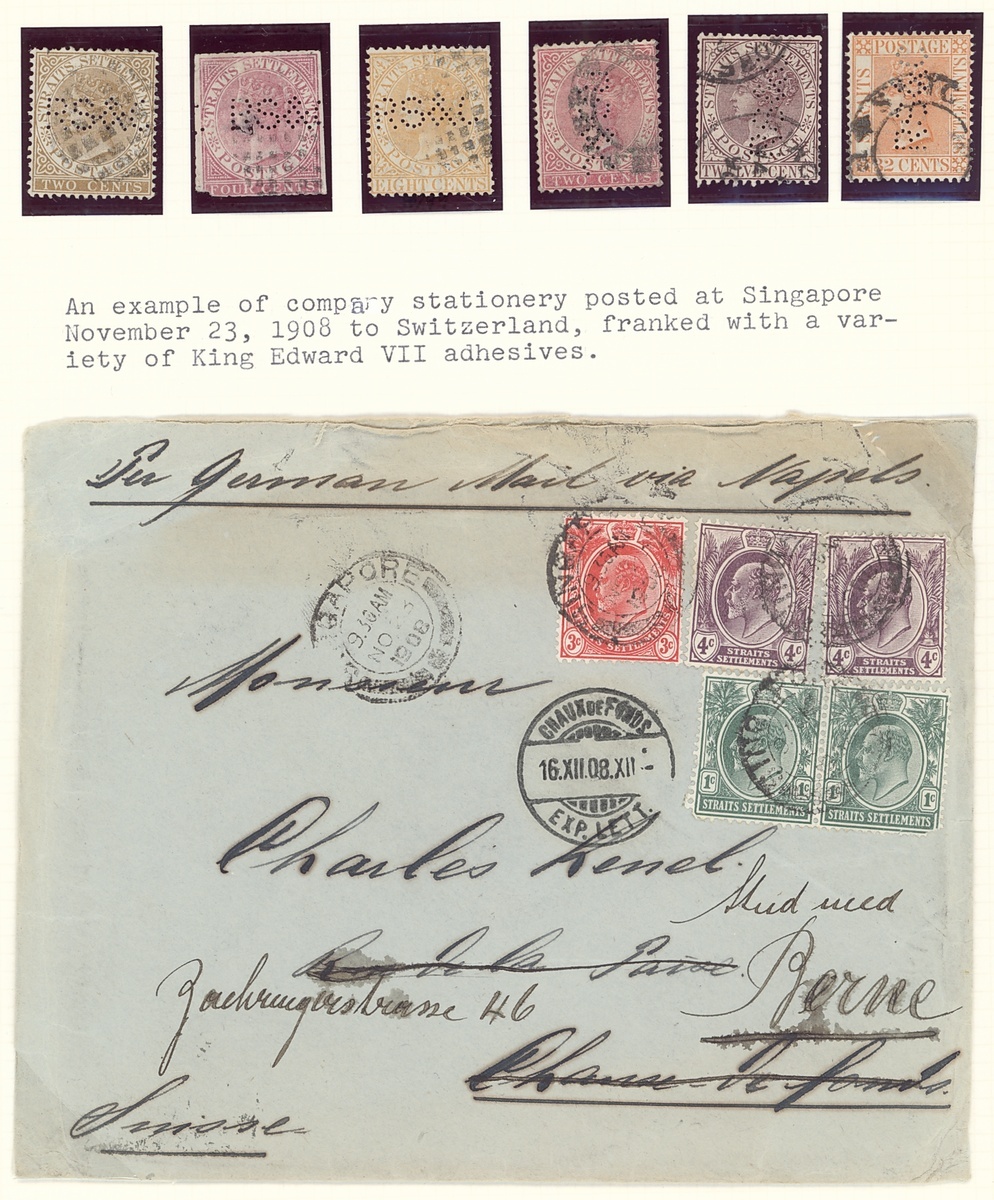 STRAITS SETTLEMENTS
POSTAGE
TWO CENTS
STRAITS SETTLEMENTS
POSTAGE
FOUR CENTS
STRAITS SETTLEMENTS
POSTAGE
EIGHT CENTS
STRAITS SETTLEMENTS
POSTAGE
TWO CENTS
STRAITS SETTLEMENTS
POSTAGE
CENTS
POSTAGE
CENTS
An example of company stationery posted at Singapore
November 23, 1908 to Switzerland, franked with a var-
iety of King Edward VII adhesives.
Per German Mail via Napels.
GAPORE
9 30 AM
NO 23
1908
3c 3c
SETTLEMENTS
4c 4c
STRAITS
SETTLEMENTS
4c 4c
STRAITS
SETTLEMENTS
1c 1c
STRAITS SETTLEMENTS
1c 1c
STRAITS SETTLEMENTS
Monsieur
CHAUX DE FONDS
16.XII.08.XII
EXP. LETT.
Charles
Stud med
Rue de la
Berne
Zaehringerstrasse 46
Chaux-de-fonds.
Suisse